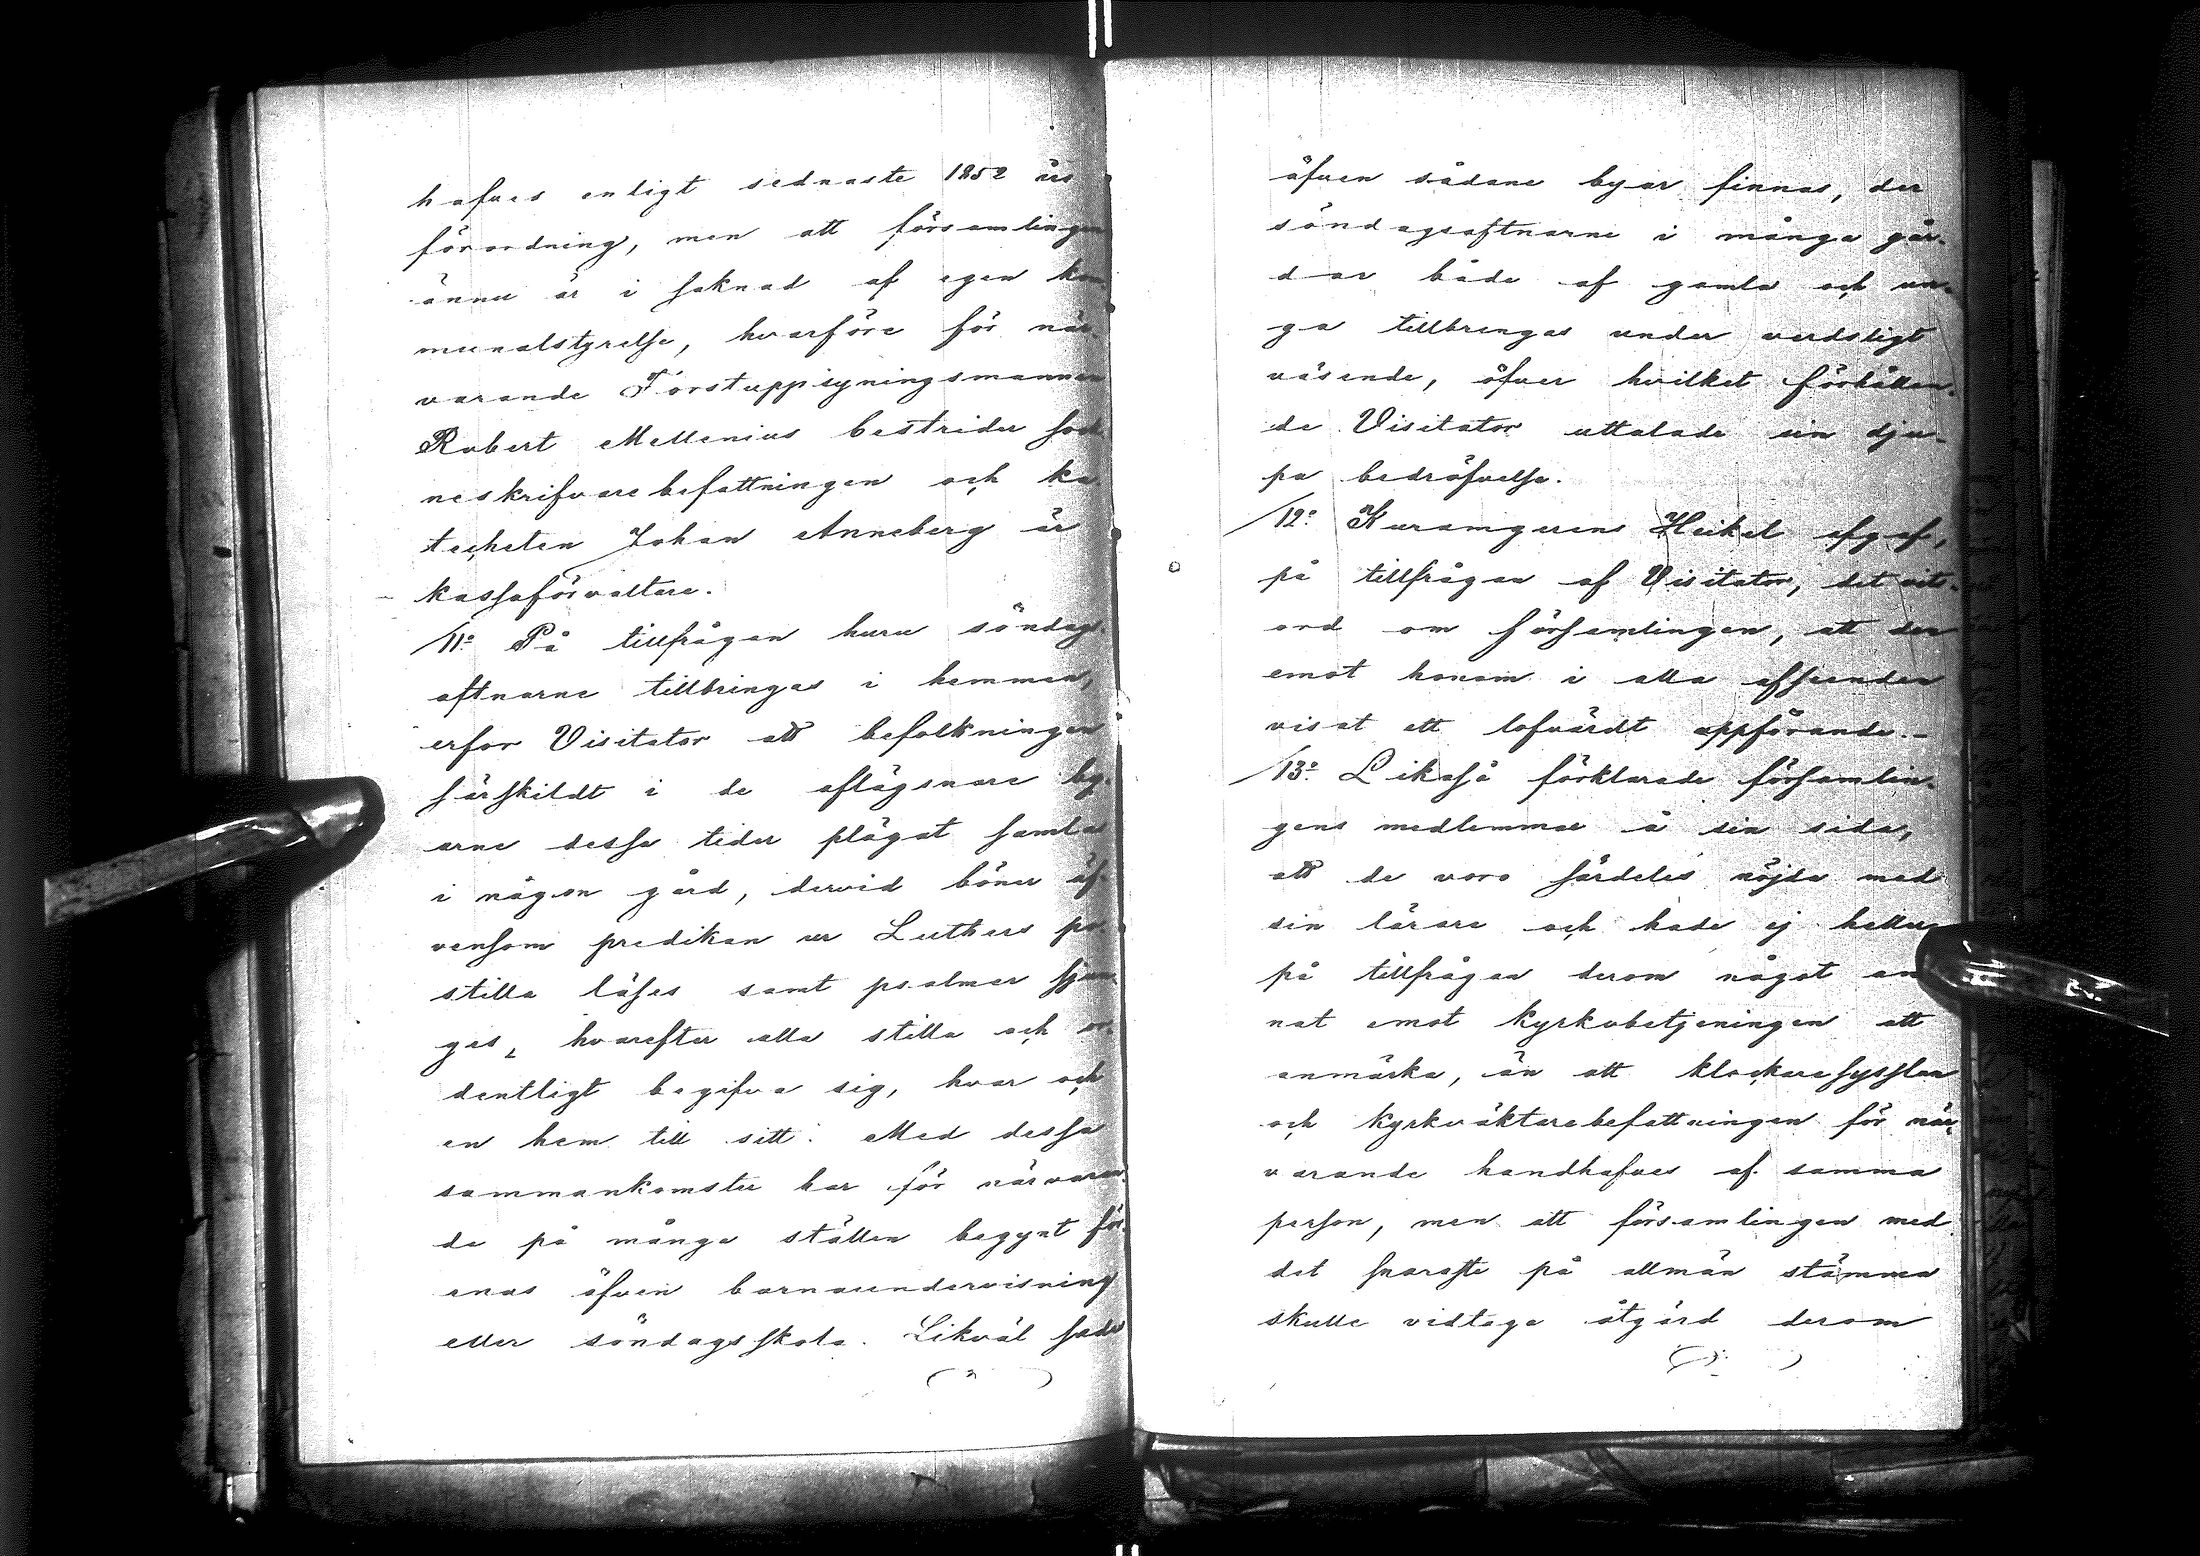 hafves enligt sednaste 1852 års
förordning, men att församlingen
ännu är i saknad af egen kom-
munalstyrelse, hvarföre för när-
varande Forstuppsyningsmannen
Robert Mellenius bestrider sock-
neskrifvarebefattningen och ka-
techeten Johan Anneberg är
kassaförvaltare.
11:o På tillfrågan huru söndags-
aftnarne tillbringas i hemmen,
erfor Visitator att befolkningen
särskildt i de aflägsnare by-
arne dessa tider plägat samlas
i någon gård, dervid böner äf-
vensom predikan ur Luthers po-
stilla läses samt psalmer sjun-
ges, hvarefter alla stilla och or-
dentligt begifva sig, hvar och
en hem till sitt. Med dessa
sammankomster har för närvaran-
de på många ställen begynt för-
enas äfven barnaundervisning
eller söndagsskola. Likväl sades
äfven sådane byar finnas, der
söndagsaftnarne i många går-
dar både af gamla och un-
ga tillbringas under verdsligt
väsende, öfver hvilket förhållan-
de Visitator uttalade sin dju-
pa bedröfvelse.
12:o Kuramgeren Heikel afgaf,
på tillfrågan af Visitator, det vits-
ord om församlingen, att den
emot honom i alla afseenden
visat ett lofvärdt uppförande.—
13:o Likaså förklarade församlin-
gens medlemmar å sin sida,
att de voro särdeles nöjda med
sin lärare och hade ej heller
på tillfrågan derom något an
nat emot kyrkobetjeningen att
anmärka, än att klockaresysslan
och kyrkväktarebefattningen för när-
varande handhafves af samma
person, men att församlingen med
det snaraste på allmän stämma
skulle vidtaga åtgärd derom